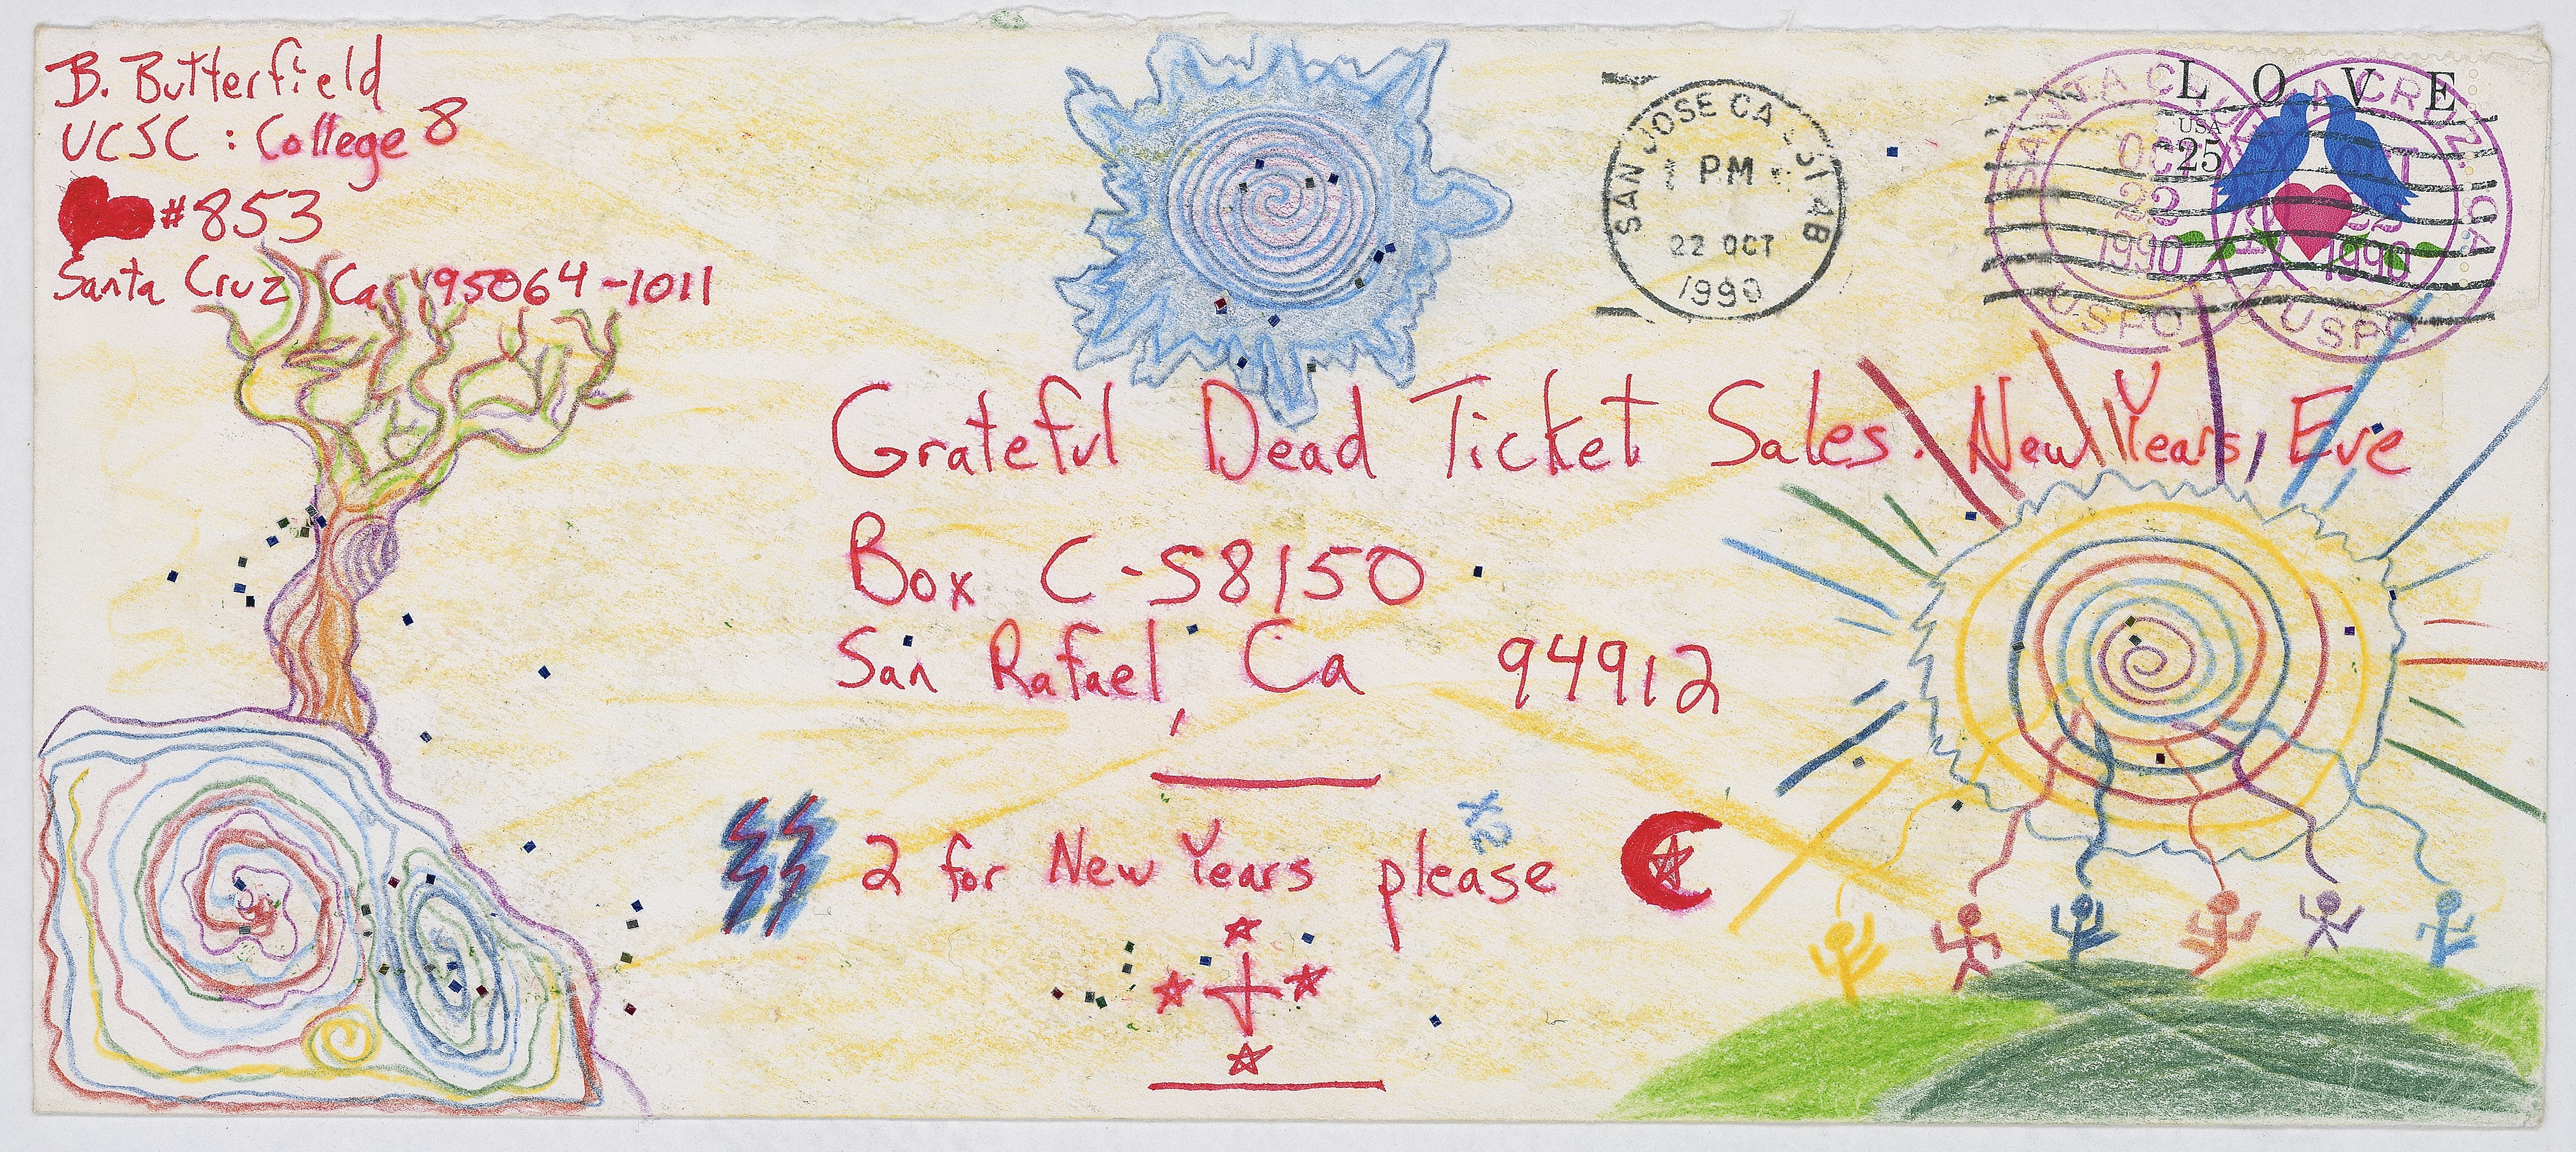 B. Butterfield
UCSC : College 8
#853
Santa Cruz Ca 95064-1011
SAN JOSE CA
1 PM
22 OCT
1990
L O V E
USA
25
SANTA CRUZ
OCT
22
1990
USPO
SANTA CRUZ, CA
OCT
22
1990
USPO
Grateful Dead Ticket Sales. New Years, Eve
Box C-58150
San Rafael, Ca 94912
x2
2 for New Years please